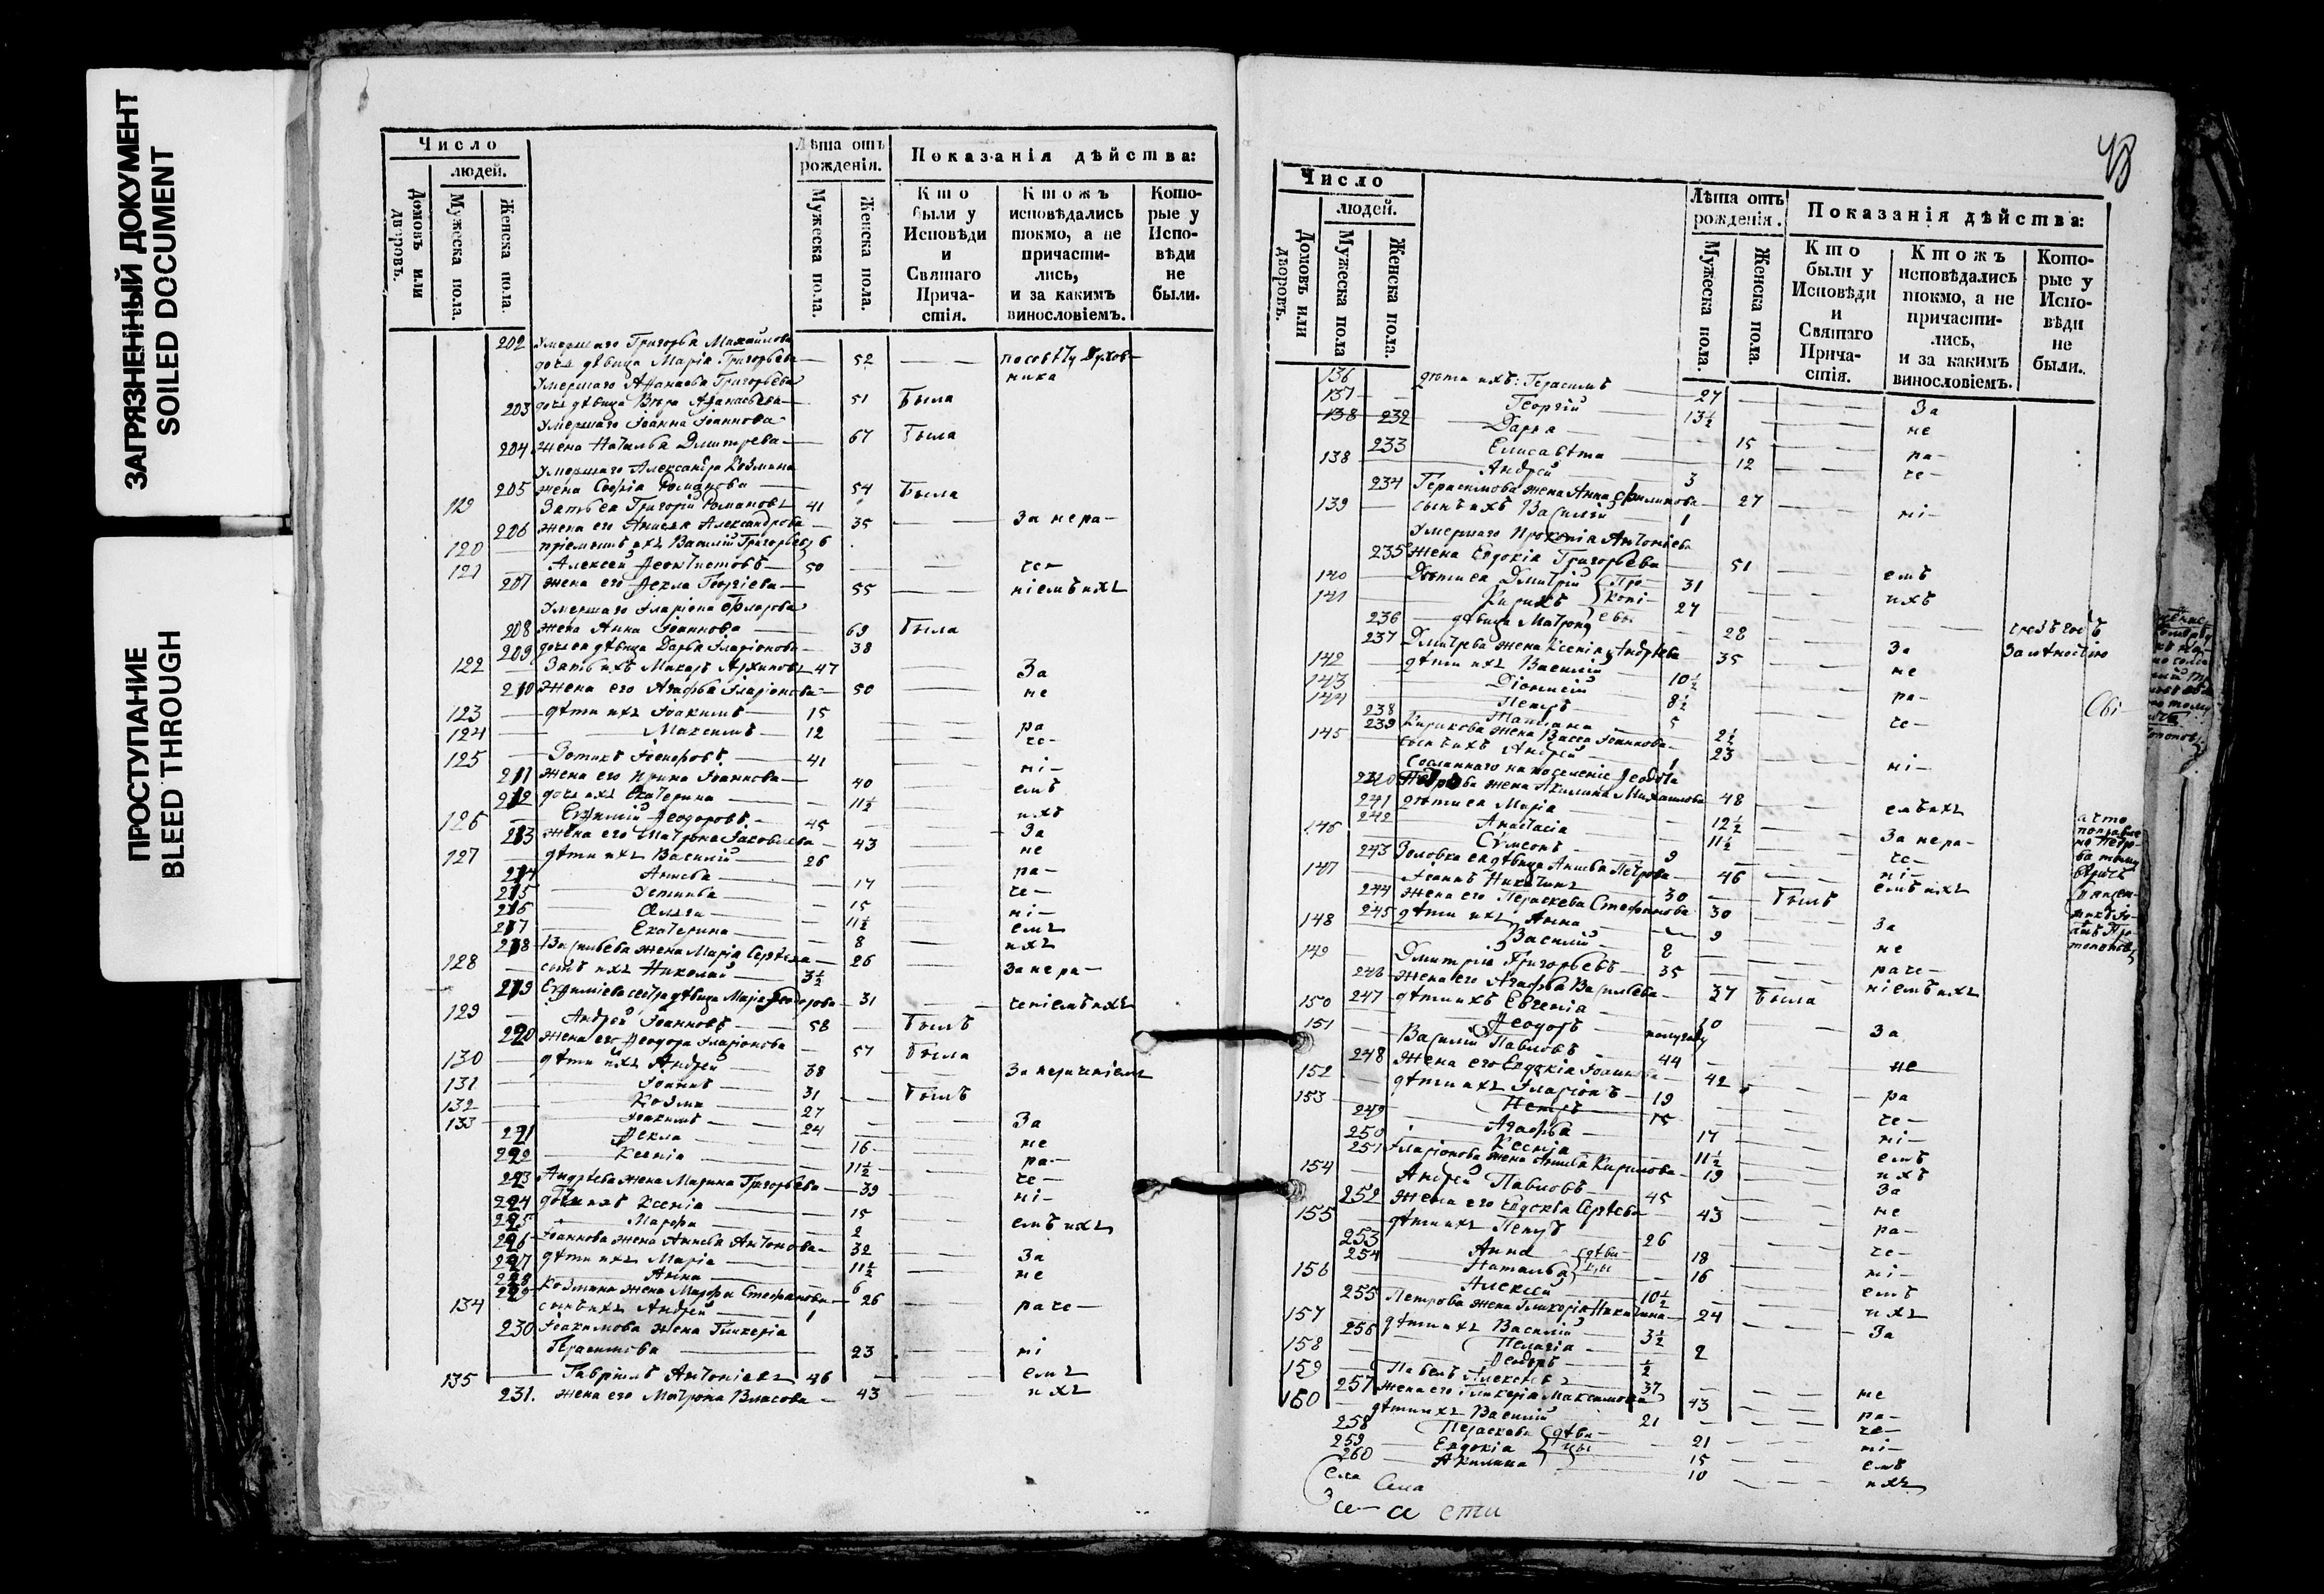 ЗАГРЯЗНЕННЫЙ ДОКУМЕНТ
SOILED DOCUMENT
ПРОСТУПАНИЕ
BLEED THROUGH
Число
людей.
Домовъ или дворовъ.
Мужеска пола.
Женска пола.
Лѣта отъ рожденія.
Мужеска пола.
Женска пола.
Показанія дѣйства:
Кто были у Исповѣди и Святаго Причастія.
Ктожъ исповѣдались токмо, а не причастились, и за какимъ винословіемъ.
Которые у Исповѣди не были.
202 Умершаго Григорья Михайлова
дочь дѣвица Марія Григорьева — 52 — — по совѣту духов-
ника
Умершаго Афанасья Григорьева
203 дочь дѣвица Вѣра Афанасьева — 51 Была
Умершаго Іоанна Іоаннова
204 жена Наталья Дмитрева — 67 Была
Умершаго Александра Козмина
205 жена Софія Романова — 54 Была
119 Зять ея Григорій Романовъ 41
206 жена его Анисья Александрова — 35 — — За нера-
120 — пріемышъ ихъ Василій Григорьевъ 6
121 — Алексей Феоктистовъ — 50 — — че-
207 жена его Фекла Георгіева — 55 — — ніемъ ихъ
Умершаго Иларіона Флорова
208 жена Анна Іоаннова — 69 Была
209 дочь ея дѣвица Дарья Иларіонова — 38
122 — Зять ихъ Макаръ Архиповъ 47 — За
210 жена его Агафья Иларіонова — 50 — не
123 — дѣти ихъ Іоакимъ — 15 — ра
124 — Максимъ — 12 — че-
125 — Зотикъ — 41 — ні-
211 жена его Ирина Іоаннова — 40 — емъ
212 дочь ихъ Екатерина — 11½ — ихъ
126 — Евфимій Феодоровъ — 45 — За
213 жена его Матрона Іаковлева — 43 — не
127 — дѣти ихъ Василій — 26 — ра-
214 Анисья — 17 — че-
215 Устинья — 15 — ні-
216 Ольга — 11½ — емъ
217 Екатерина — 8 — ихъ
218 Васильева жена Марія Сергѣева — 26
128 — сынъ ихъ Николай — 3½ — За нера-
219 Евфиміева сестра дѣвица Марія Феодорова — 31 — — ченіемъ ихъ
129 — Андрей Іоанновъ — 58 — Былъ
220 жена его Феодора Иларіонова — 57 Была
130 — дѣти ихъ Андрей — 38 — За нераченіемъ
131 — Іоаннъ — 31 — Былъ
132 — Козма — 27
133 — Іоакимъ — 24 — За
221 Фекла — 16 — не
222 Ксенія — 11½ — ра-
223 Андреева жена Марина Григорьева — 39 — че-
224 дочь ихъ Ксенія — 15 — ні-
225 Марфа — 2 — емъ ихъ
226 Іоаннова жена Анисья Антонова — 32 — За
227 дѣти ихъ Марія — 11½ — не
228 Анна — 6
229 Козмина жена Марфа Стефанова — 26 — раче-
134 — сынъ ихъ Андрей — 1
230 Іоакимова жена Гликерія
Герасимова — 23 — ні
135 — Гавріилъ Антоніевъ 46 — емъ
231. жена его Матрона Власова — 43 — ихъ
Число
людей.
Домовъ или дворовъ.
Мужеска пола
Женска пола.
Лѣта отъ рожденія.
Мужеска пола.
Женска пола.
Показанія дѣйства:
Кто были у Исповѣди и Святаго Причастія.
Ктожъ исповѣдались токмо, а не причастились, и за какимъ винословіемъ.
Которые у Исповѣди не были.
136 дѣти ихъ: Герасимъ — 27 — За
137 Георгій — 13½ — не
138 232 Дарья — 15 — ра-
233 Елисавета — 12 — че-
138 Андрей — 3
234 Герасимова жена Анна Филипова — 27 — ні-
139 сынъ ихъ Василій — 1
Умершаго Прокопія Антоніева
235 жена Евдокія Григорьева — 51 — емъ
140 Дѣти ея Дмитрій — 31 — ихъ
141 Кирикъ — 27
236 дѣвица Матрона — 28
237 Дмитрева жена Ксенія Андреева — 35 — За
142 дѣти ихъ Василій — 10½ — не
143 Діонисій — 8½ — ра-
144 Петръ — 5 — че-
238 Татіана — 2½
239 Кирикова жена Васса Іоаннова — 23 — ні-
145 сынъ ихъ Андрей — 1
Сосланнаго на поселеніе
240 жена Акилина Михаилова 48 — емъ ихъ
241 дѣти ея Марія — 12½
242 Анастасія — 11½ — За нера-
146 Сѵмеонъ — 9 — че-
243 Золовка ея дѣвица Анисья Петрова — 46 — ні-
147 Іоаннъ Никитинъ — 30 — Былъ — емъ ихъ
244 жена его Параскева Стефанова — 30
245 дѣти ихъ Анна — 9 — За
148 Василій — 8 — не
149 Дмитрій Григорьевъ — 35 — раче-
246 жена его Агафья Васильева — 37 Была — ніемъ ихъ
247 дѣти ихъ Евгенія — 10
150 Феодоръ — полугоду — За
151 Василій Павловъ — 44 — не
248 жена его Евдокія Іоаннова — 42
152 дѣти ихъ Иларіонъ — 19 — ра
153 Петръ — 15 — че-
249 Агафья — 17 — ні-
250 Ксенія — 11½ — емъ
251 Иларіонова жена Анисья Кирилова — 19 — ихъ
154 Андрей Павловъ — 45 — За
252 жена его Евдокія Сергѣева — 43 — не
155 дѣти ихъ Петръ — 26 — ра-
253 Анна — 18 — че-
254 Наталья — 16 — ні-
156 Алексей — 10½ — емъ
255 Петрова жена Гликерія Никитина — 24 — ихъ
157 дѣти ихъ Василій — 3½ — За
256 Пелагія — 2
158 Феодоръ — ½
159 Павелъ Алексѣевъ — 37 — не
257 жена его Гликерія Максимова — 43 — ра-
160 дѣти ихъ Василій — 21 — че-
258 Параскева — 21 — ні-
259 Евдокія — 15 — емъ
260 Акилина — 10 — ихъ